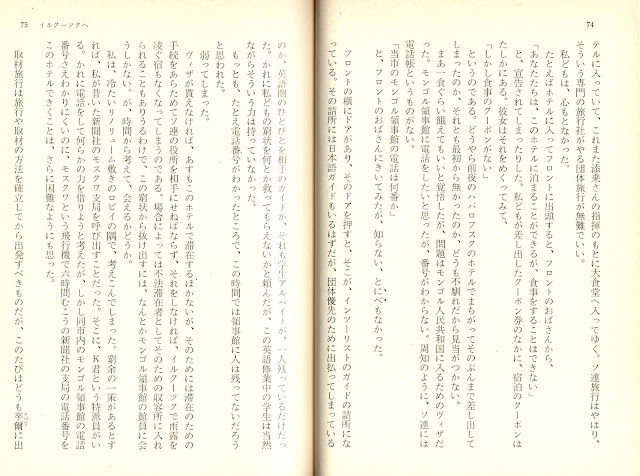 74
テルに入っていて、これまた添乗さんの指揮のもとに大食堂へ入ってゆく。ソ連旅行はやはり、
そういう専門の旅行社がやる団体旅行が無難でいい。
私どもは、心もとなかった。
たとえばホテルに入ってフロントに出頭すると、フロントのおばさんから、
「あなたたちは、このホテルに泊まることができるが、食事をすることはできない」
と、宣告されてしまったりした。私どもが差し出したクーポン券のなかに、宿泊のクーポンは
たしかにある。彼女はそれをめくってみて、
「しかし食事のクーポンがない」
というのである。どうやら前夜のハバロフスクのホテルでまちがってそのぶんまで差し出して
しまったのか、それとも最初から無かったのか、どうも不馴れだから見当がつかない。
まあ一食ぐらい餓えてもいいと覚悟したが、問題はモンゴル人民共和国に入るためのヴィザだ
った。モンゴル領事館に電話をしたいと思ったが、番号がわからない。周知のように、ソ連には
電話帳というものがない。
「当市のモンゴル領事館の電話は何番か」
と、フロントのおばさんにきいてみたが、知らない、とにべもなかった。
フロントの横にドアがあり、そのドアを押すと、そこが、インツーリストのガイドの詰所にな
っている。その詰所には日本語ガイドもいるはずだが、団体優先のために出払ってしまっている
75 イルクーツクへ
のか、英語圏のひとびとを相手のガイドが、それも学生アルバイトが、一人残っているだけだっ
た。かれに私どもの窮状を何とか救ってもらえないかと頼んだが、この英語修業中の学生は当然
ながらそういう力は持っていなかった。
もっとも、たとえ電話番号がわかったところで、この時間では領事館に人は残ってないだろう
と思われた。
弱ってしまった。
ヴィザが貰えなければ、あすもこのホテルで滞在するほかないが、そのためには滞在のための
手続をあらためてソ連の役所を相手にせねばならず、それをしなければ、イルクーツクで雨露を
凌ぐ宿もなくなってしまうのである。場合によっては不法滞在者としてその収容所に入れ
られることもありうるわけで、この窮状から抜け出すには、なんとかモンゴル領事館の館員に会
うしかない。が、時間から考えて、会えるかどうか。
私は、冷たいリノリューム敷きのロビイの隅で、考えこんでしまった。窮余の一策があるとす
れば、私が昔いた新聞社のモスクワ支局を呼び出すことだった。そこに、K君という特派員がい
る。かれに電話をして何らかの力を借りようと考えたが、しかし同市内のモンゴル領事館の電話
番号さえわかりにくいのに、モスクワという飛行機で六時間むこうの新聞社の支局の電話番号を
このホテルできくことは、さらに困難なようにも思った。
取材旅行は旅行や取材の方法を確立してから出発すべきものだが、このたびはどうも卒爾に出